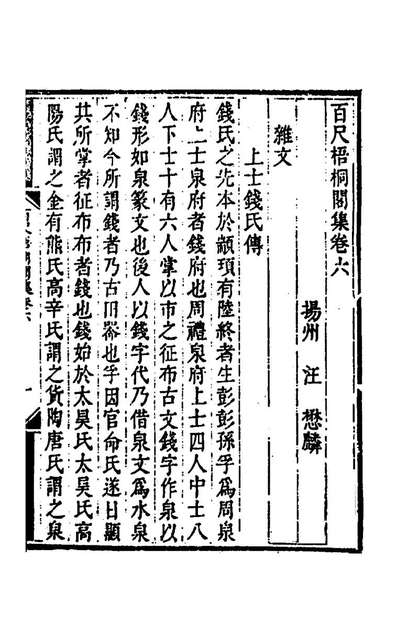 百尺梧桐閣集卷六
揚州 汪 懋麟
雜文
上士錢氏傳
錢氏之先本於顓頊有陸終者生彭彭孫孚爲周泉
府上士泉府者錢府也周禮泉府上士四人中士八
人下士十有六人掌以市之征布古文錢字作泉以
錢形如泉篆文也後人以錢字代乃借泉文爲水泉
不知今所謂錢者乃古田器也孚因官命氏遂日顯
共所掌者征布布者錢也錢始於太昊氏太昊氏高
陽氏謂之金有熊氏高辛氏謂之貨陶唐氏謂之泉